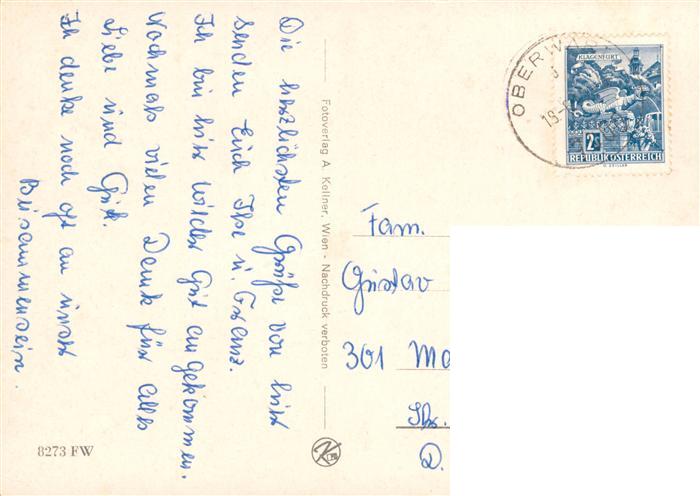 Die herzlichsten Grüße von hier
senden Euch Ilse u. Franz.
Ich bin hier wieder Gut angekommen.
Nochmals vielen Dank für alles
Liebe und Gute.
Ich denke noch oft an unser
Beisammensein.
Fotoverlag A. Kellner, Wien - Nachdruck verboten
8273 FW
OBERW
19.
KLAGENFURT
2S
REPUBLIK ÖSTERREICH
Fam.
Gustav
301 Ma
Str.
D.